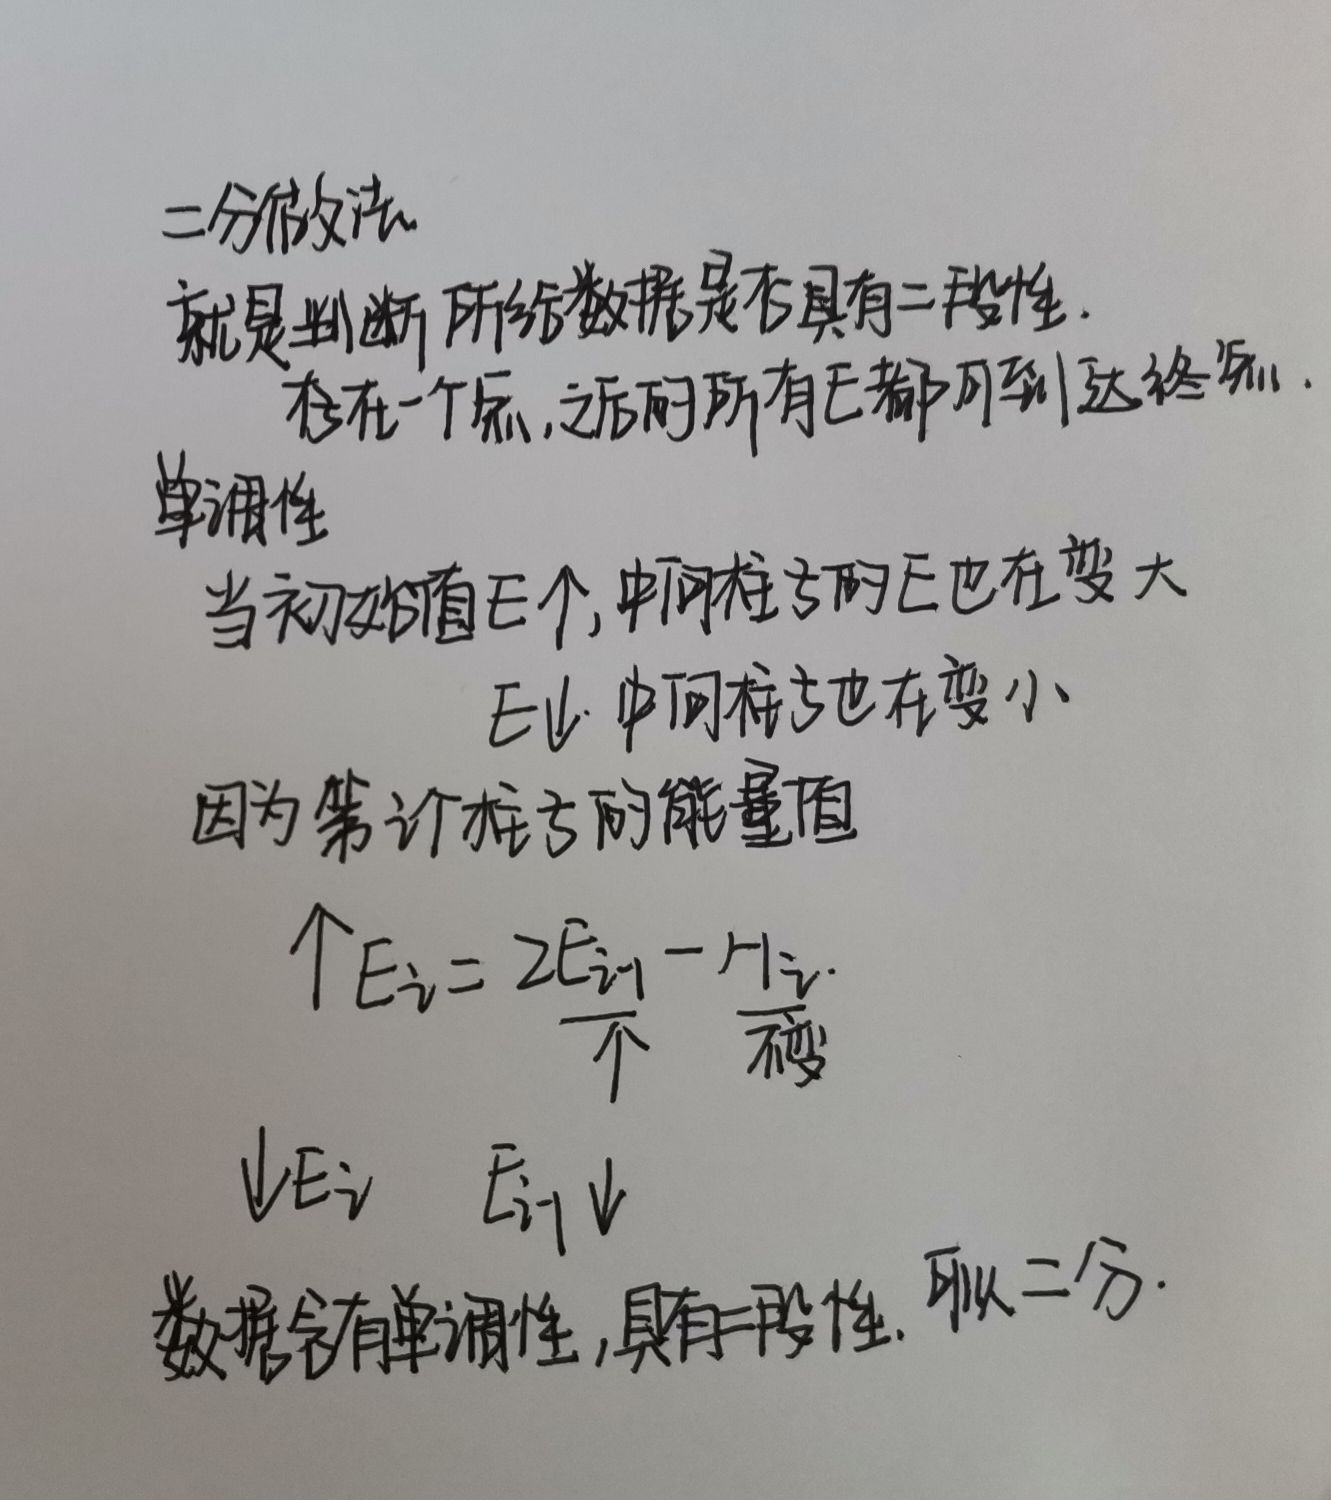 二分做法
就是判断所给数据是否具有二段性.
存在一个点,之后的所有E都可到达终点.
单调性
当初始值E个,中间柱子的E也在变大
E↓.中间柱子也在变小
因为第i个柱子的能量值
↑Ei = 2Ei-1 - Hi.
↑ 不变
↓Ei Ei-1↓
数据含有单调性,具有二段性.可以二分.